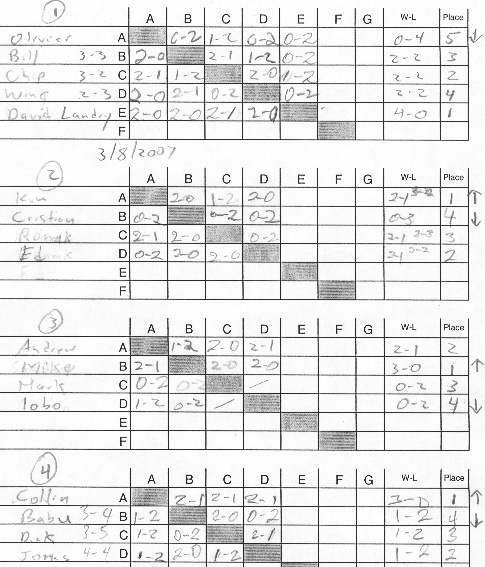 1 A B C D E F G W-L Place
Olivier A 0-2 1-2 0-2 0-2 0-4 5 ↓
Bill 3-3 B 2-0 2-1 1-2 0-2 2-2 3
Chip 3-2 C 2-1 1-2 2-0 1-2 2-2 2
Wing 2-3 D 2-0 2-1 0-2 0-2 2-2 4
David Landry E 2-0 2-0 2-1 2-0 4-0 1
F
3/8/2007
2 A B C D E F G W-L Place
A 2-0 1-2 2-0 2-1 1 ↑
Cristian B 0-2 0-2 0-2 0-3 4 ↓
C 2-1 2-0 0-2 2-1 3
D 0-2 2-0 2-0 2-1 2
E
F
3 A B C D E F G W-L Place
Andrew A 1-2 2-0 2-1 2-1 2
Mike B 2-1 2-0 2-0 3-0 1 ↑
Mark C 0-2 0-2 / 0-2 3
lobo D 1-2 0-2 / 0-2 4 ↓
E
F
4 A B C D E F G W-L Place
Collin A 2-1 2-1 2-1 3-0 1 ↑
Babul 3-4 B 1-2 2-0 0-2 1-2 4 ↓
Dick 3-5 C 1-2 0-2 2-1 1-2 3
Jonas 4-4 D 1-2 2-0 1-2 1-2 2